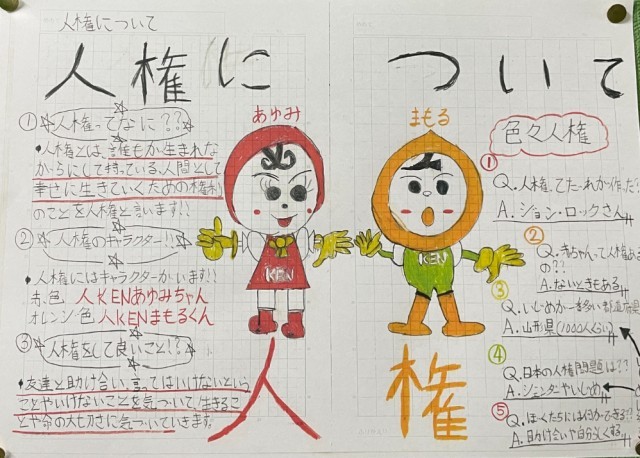 人権について
人権について
①人権ってなに??
・人権とは、誰もが生まれな
がらにして持っている、人間として
幸せに生きていくための権利
のことを人権と言います!!
②人権のキャラクター!!
・人権にはキャラクターがいます!!
赤色 人KENあゆみちゃん
オレンジ色 人KENまもるくん
③人権をして良いこと!?
・友達と助け合い、言ってはいけないという
ことやいけないことを気づいて生きるこ
とや命の大切さに気づいていきます。
あゆみ
KEN
人
まもる
KEN
権
色々人権
①
Q.人権、てだれが作った?
A.ジョン・ロックさん
②
Q.赤ちゃんって人権ある
の??
A.ないときもある
③
Q.いじめが一番多い都道府県
A.山形県(1000人くらい)
④
Q.日本の人権問題は?
A.ジェンダーやいじめ
⑤
Q.ぼくたちには何かできる?
A.助け合いや自分らしくする